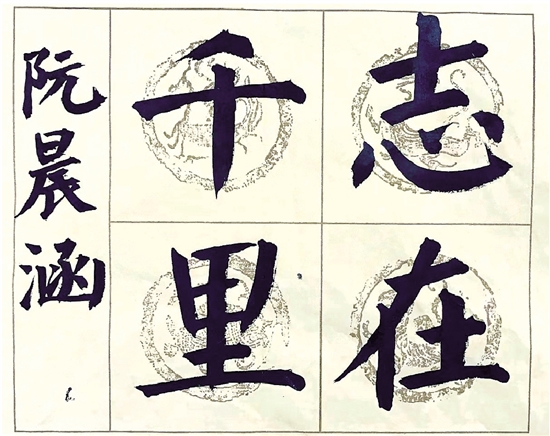 志在
千里
阮晨涵